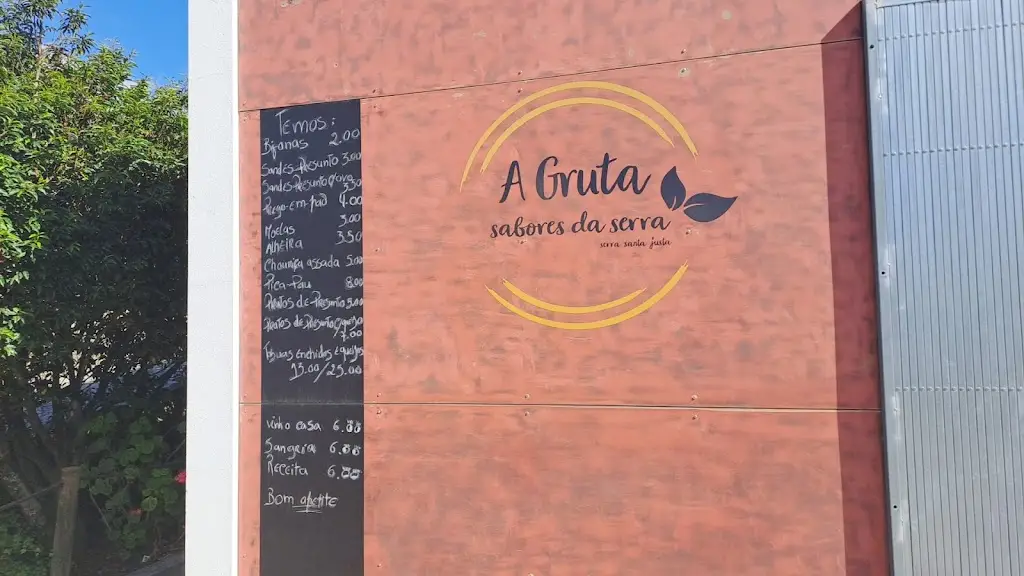 Temos:
Bifanas 2.00
Sandes Presunto 3.00
Sandes Presunto c/ovo 3.50
Prego em pão 4.00
Moelas 3.00
Alheira 3.50
Chouriça assada 5.00
Pica-Pau 8.00
Pratos de Presunto 5.00
Pratos de Presunto c/queijo
7.00
Tábuas enchidos e queijos
15.00/25.00
Vinho casa 6.00
Sangria 6.00
Receita 6.00
Bom apetite
A Gruta
sabores da serra
serra santa justa